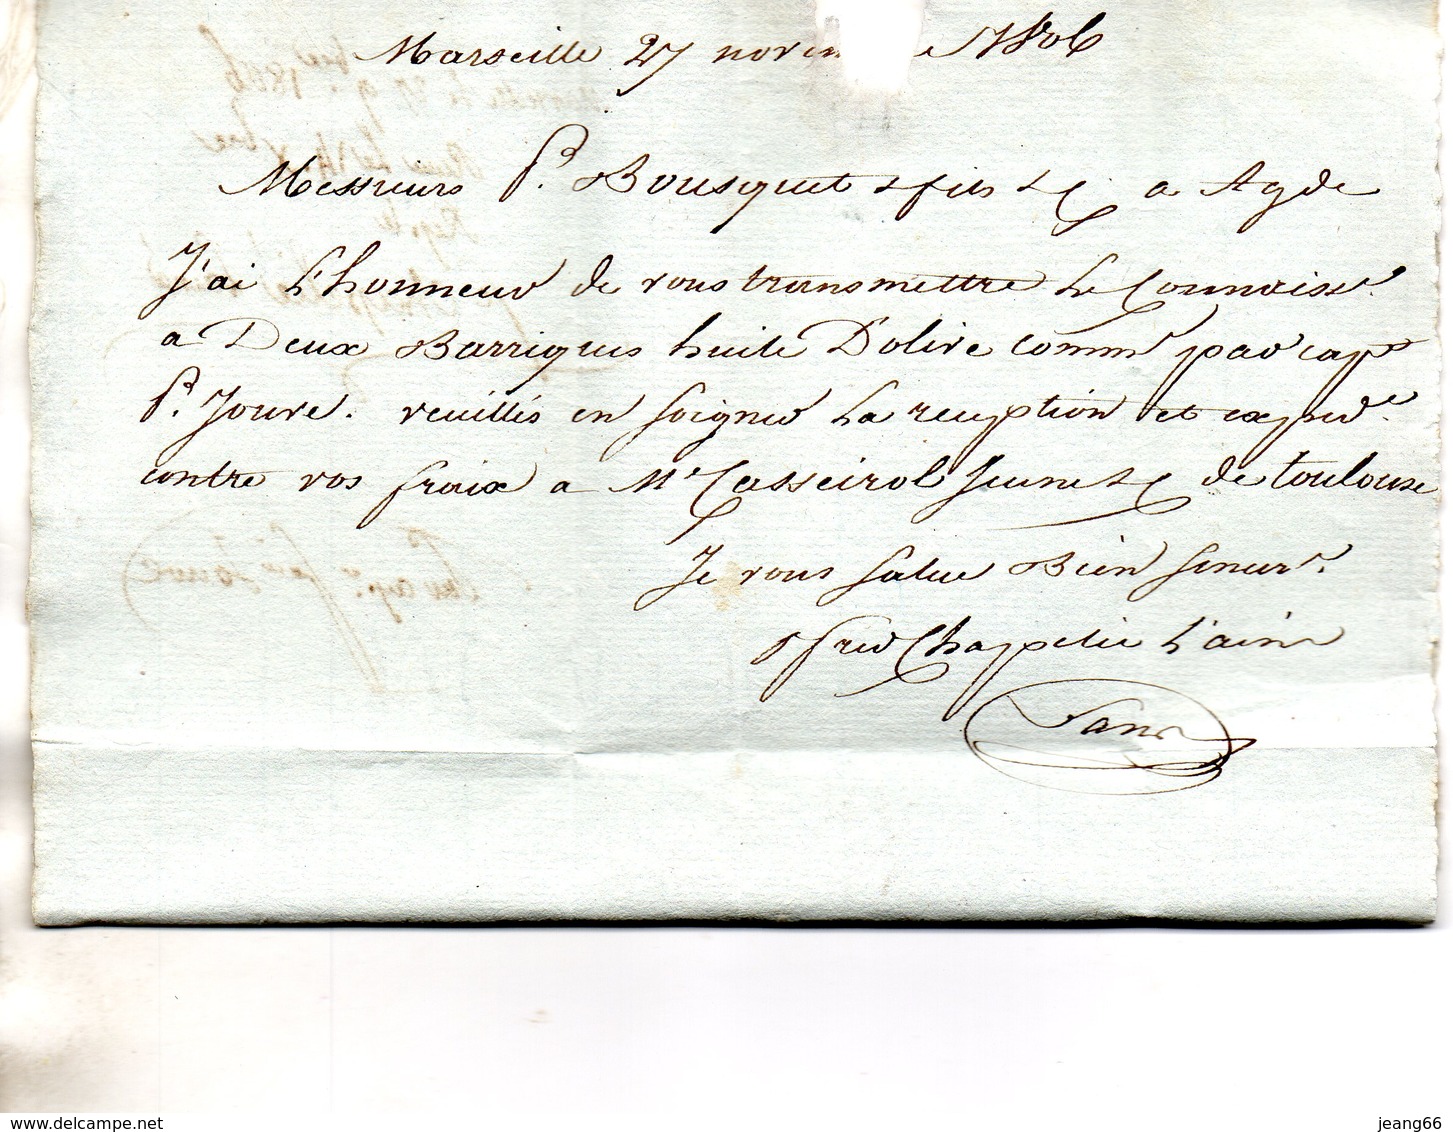 Marseille 27 novem e 1806
Messieurs P. Bousquet & fils & C. a Agde
J'ai L'honneur de vous transmettre Le Connaisst.
a Deux Barriques huile D'olive comme par cape
P. Jouve. veuillés en soigner La reception et exped.
contre vos fraix a Mr Casseirol Jeune & C de toulouse
Je vous salue Bien
Chappelie L'ainé
jeang66